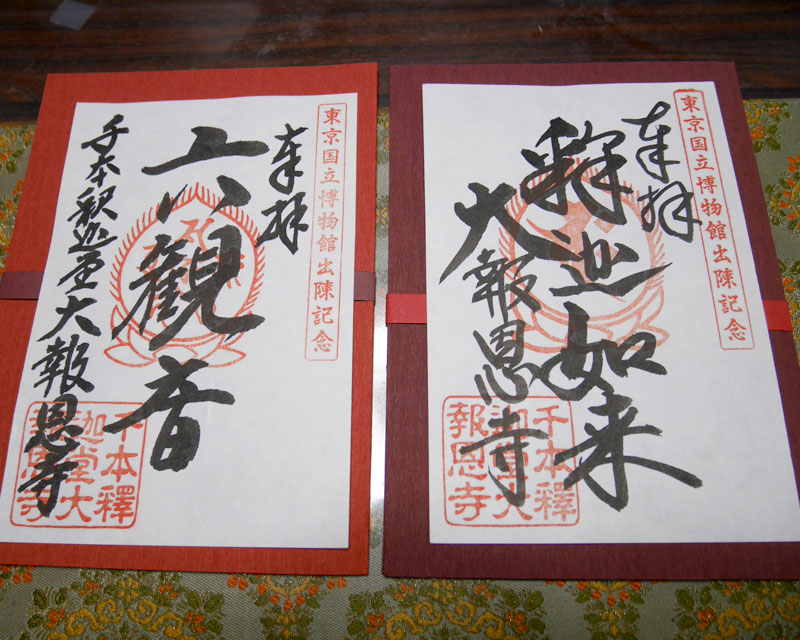 東京国立博物館出陳記念
奉拝
六観音
千本釈迦堂大報恩寺
千本釋
迦堂大
報恩寺
東京国立博物館出陳記念
奉拝
釈迦如来
大報恩寺
千本釋
迦堂大
報恩寺